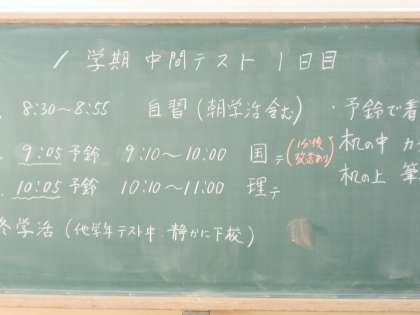 1学期 中間テスト 1日目
8:30～8:55 自習(朝学活含む)
9:05予鈴 9:10～10:00 国テ(1分後放送あり)
10:05予鈴 10:10～11:00 理テ
終学活(他学年テスト中.静かに下校)
・予鈴で着
机の中 カ
机の上 筆